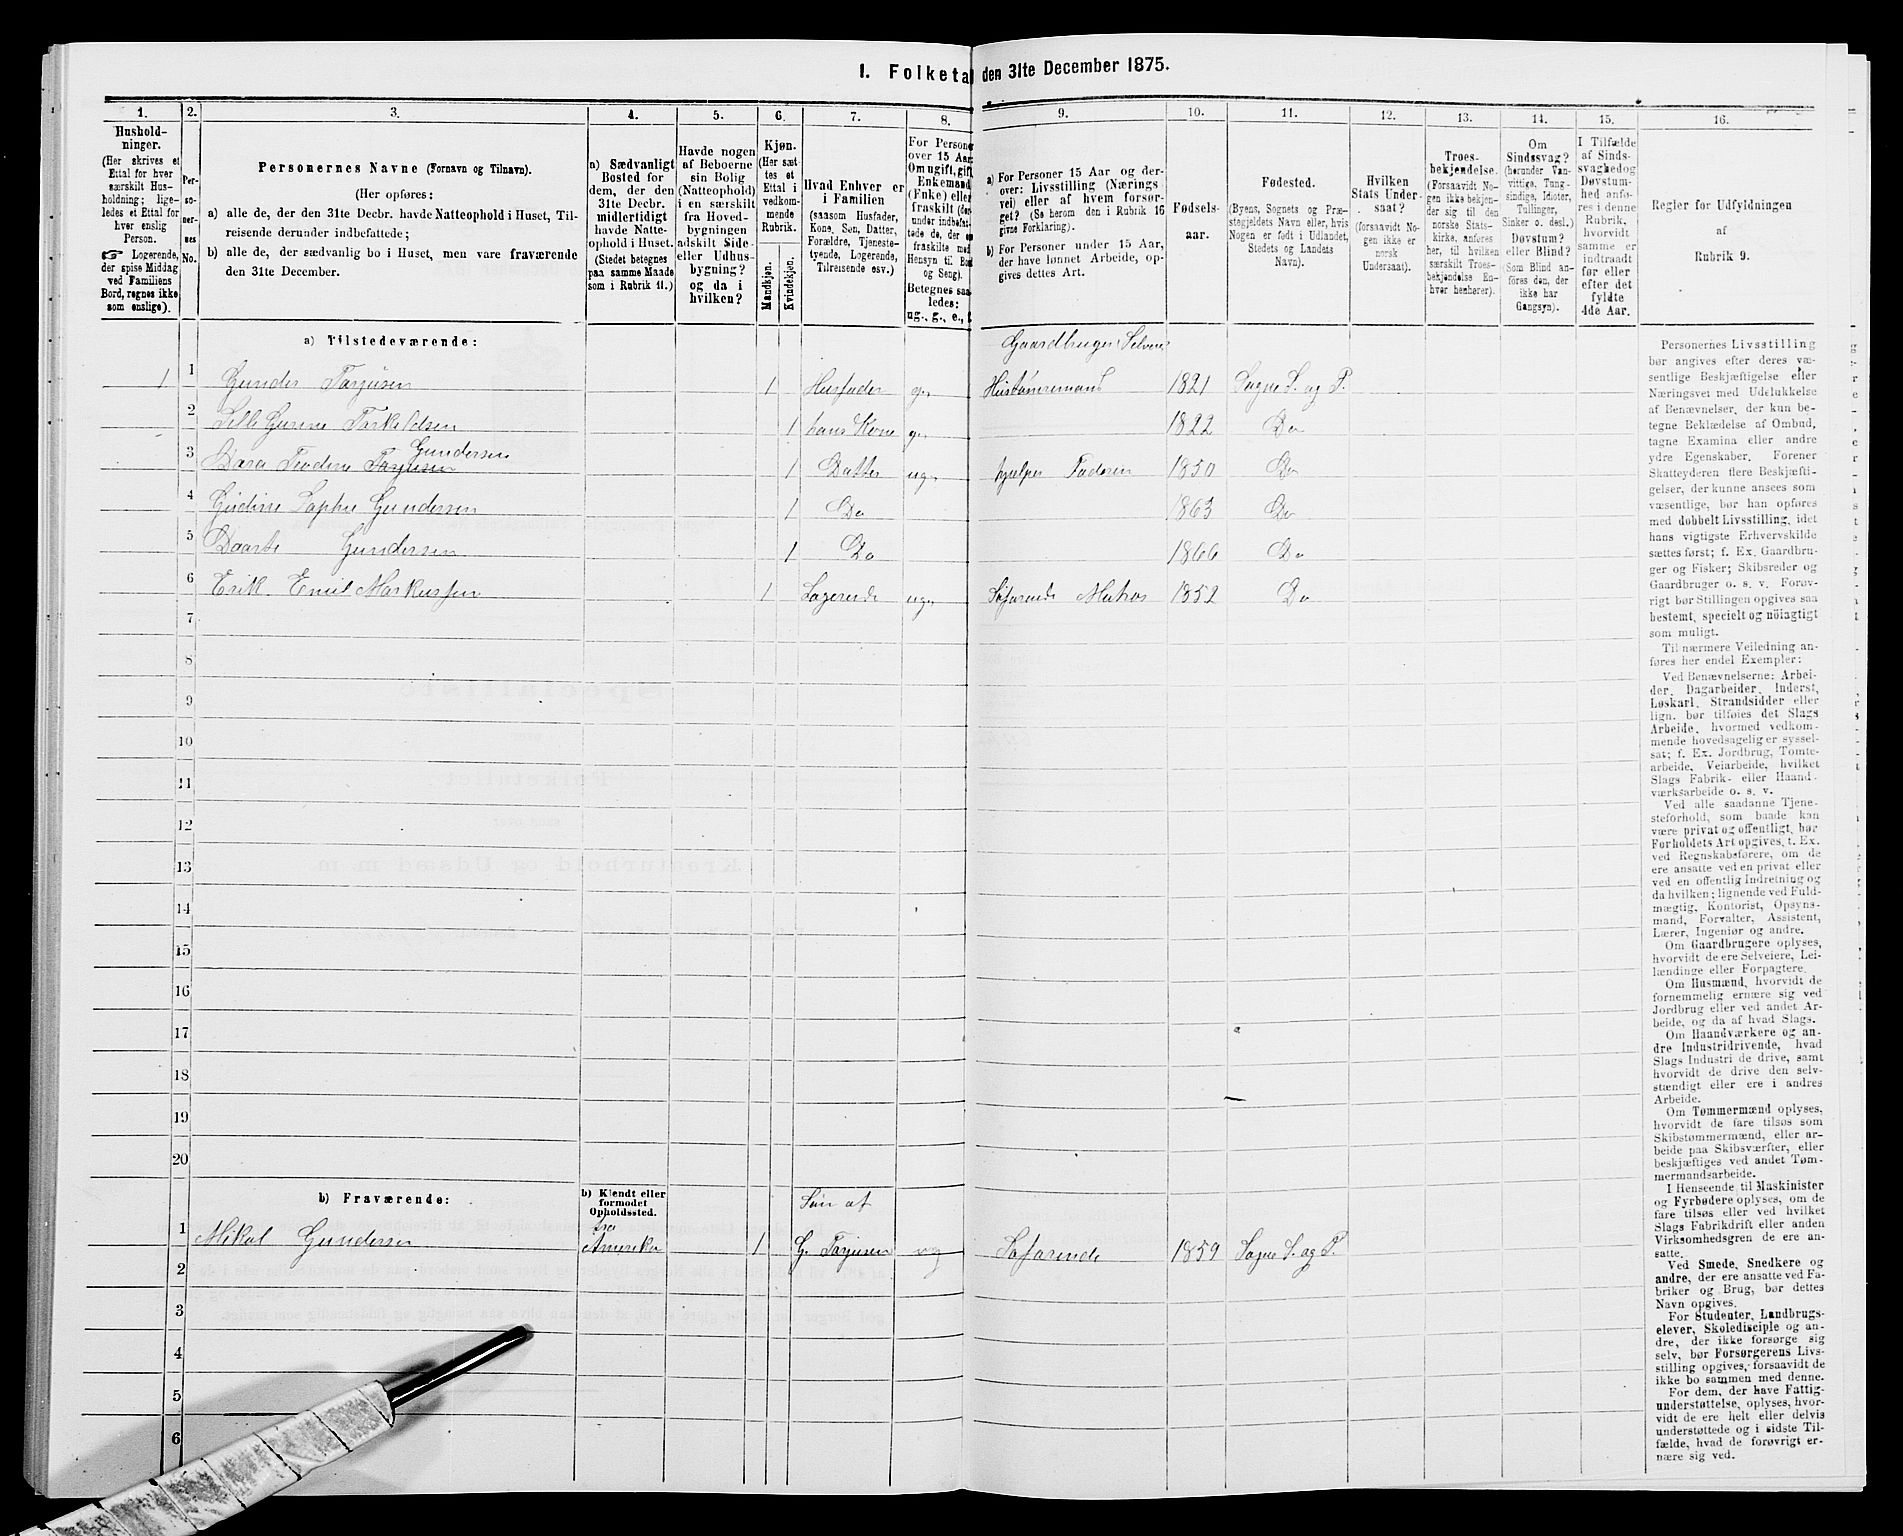 I. Folketal den 31te December 1875.
1.
Hushold-
ninger.
(Her skrives et
Ettal for hver
særskilt Hus-
holdning; lige-
ledes et Ettal for
hver enslig
Person.
☞ Logerende,
der spise Middag
ved Familiens
Bord, regnes ikke
som enslige).
2.
Per-
so-
ner-
nes
No.
3.
Personernes Navne (Fornavn og Tilnavn).
(Her opføres:
a) alle de, der den 31te Decbr. havde Natteophold i Huset, Til-
reisende derunder indbefattede;
b) alle de, der sædvanlig bo i Huset, men vare fraværende
den 31te December.
4.
a) Sædvanligt
Bosted for
dem, der den
31te Decbr.
midlertidigt
havde Natte-
ophold i Huset.
(Stedet betegnes
paa samme Maade
som i Rubrik 11.)
5.
Havde nogen
af Beboerne
sin Bolig
(Natteophold)
i en særskilt
fra Hoved-
bygningen
adskilt Side-
eller Udhus-
bygning?
og da i
hvilken?
6.
Kjøn.
(Her sæt-
tes et
Ettal i
vedkom-
mende
Rubrik.
Mandkjøn.
Kvindekjøn.
7.
Hvad Enhver er
i Familien
(saasom Husfader,
Kone, Søn, Datter,
Forældre, Tjeneste-
tyende, Logerende,
Tilreisende osv.)
8.
For Personer
over 15 Aar
Om ugift, gift,
Enkemand
(Enke) eller
fraskilt (der-
under indbefat-
tede de, der ere
fraskilte med
Hensyn til Bord
og Seng).
Betegnes saa-
ledes:
ug., g., e., f.
9.
a) For Personer 15 Aar og der-
over: Livsstilling (Nærings-
vei) eller af hvem forsør-
get? (Se herom den i Rubrik 16
givne Forklaring).
b) For Personer under 15 Aar,
der have lønnet Arbeide, op-
gives dettes Art.
10.
Fødsels-
aar.
11.
Fødested.
(Byens, Sognets og Præ-
stegjeldets Navn eller, hvis
Nogen er født i Udlandet,
Stedets og Landets
Navn).
12.
Hvilken
Stats Under-
saat?
(forsaavidt No-
gen ikke er
norsk
Undersaat).
13.
Troes-
bekjendelse.
(Forsaavidt No-
gen ikke bekjen-
der sig til den
norske Stats-
kirke, anføres
her, til hvilken
særskilt Troes-
bekjendelse En-
hver henhører).
14.
Om
Sindssvag?
(herunder Van-
vittige, Tung-
sindige, Idioter,
Tullinger,
Sinker o. desl.)
Døvstum?
eller Blind?
(Som Blind an-
føres den, der
ikke har
Gangsyn).
15.
I Tilfælde
af Sinds-
svaghed og
Døvstum-
hed anfø-
res i denne
Rubrik,
hvorvidt
samme er
indtraadt
før eller
efter det
fyldte
4de Aar.
16.
Regler for Udfyldningen
af
Rubrik 9.
a) Tilstedeværende:
Gaardbruger Selveier
1 1 Gunder Tarjusen 1 Husfader g. Hustømremand 1821 Søgne S. og P.
2 Silli Gurine Torkeldsen 1 hans Kone g. 1822 Do
Gundersen
3 Dara Teodine Tarjusen 1 Datter ug. hjælper Faderen 1850 Do
4 Gudine Sophie Gundersen 1 Do 1863 Do
5 Daarte Gundersen 1 Do 1866 Do
6 Erik Emil Markussen 1 Logerende ug. Søfarende Matros 1852 Do
7
8
9
10
11
12
13
14
15
16
17
18
19
20
b) Fraværende:
b) Kjendt eller
formodet
Opholdssted.
Søn af
fra
1 Mikal Gundersen Amerika 1 G. Tarjusen ug Søfarende 1859 Søgne S. og P.
2
3
4
5
6
Personernes Livsstilling
bør angives efter deres væ-
sentlige Beskjæftigelse eller
Næringsvei med Udelukkelse
af Benævnelser, der kun be-
tegne Beklædelse af Ombud,
tagne Examina eller andre
ydre Egenskaber. Forener
Skatteyderen flere Beskjæfti-
gelser, der kunne ansees som
væsentlige, bør han opføres
med dobbelt Livsstilling, idet
hans vigtigste Erhvervskilde
sættes først; f. Ex. Gaardbru-
ger og Fisker; Skibsreder og
Gaardbruger o. s. v. Forøv-
rigt bør Stillingen opgives saa
bestemt, specielt og nöiagtigt
som muligt.
Til nærmere Veiledning an-
føres her endel Exempler:
Ved Benævnelserne: Arbei-
der, Dagarbeider, Inderst,
Løskarl, Strandsidder eller
lign. bør tilføies det Slags
Arbeide, hvormed vedkom-
mende hovedsagelig er syssel-
sat; f. Ex. Jordbrug, Tomte-
arbeide, Veiarbeide, hvilket
Slags Fabrik- eller Haand-
værksarbeide o. s. v.
Ved alle saadanne Tjene-
steforhold, som baade kan
være privat og offentligt, bør
Forholdets Art opgives, f. Ex.
ved Regnskabsførere, om de
ere ansatte ved en privat eller
ved en offentlig Indretning og
da hvilken; lignende ved Fuld-
mægtig, Kontorist, Opsyns-
mand, Forvalter, Assistent,
Lærer, Ingeniør og andre.
Om Gaardbrugere oplyses,
hvorvidt de ere Selveiere, Lei-
lændinge eller Forpagtere.
Om Husmænd, hvorvidt de
fornemmelig ernære sig ved
Jordbrug eller ved andet Ar-
beide, og da af hvad Slags.
Om Haandværkere og an-
dre Industridrivende, hvad
Slags Industri de drive, samt
hvorvidt de drive den selv-
stændigt eller ere i andres
Arbeide.
Om Tømmermænd oplyses,
hvorvidt de fare tilsøs som
Skibstømmermænd, eller ar-
beide paa Skibsværfter, eller
beskjæftiges ved andet Tøm-
mermandsarbeide.
I Henseende til Maskinister
og Fyrbødere oplyses, om de
fare tilsøs eller ved hvilket
Slags Fabrikdrift eller anden
Virksomhedsgren de ere an-
satte.
Ved Smede, Snedkere og
andre, der ere ansatte ved Fa-
briker og Brug, bør dettes
Navn opgives.
For Studenter, Landbrugs-
elever, Skoledisciple og an-
dre, der ikke forsørge sig
selv, bør Forsørgerens Livs-
stilling opgives, forsaavidt de
ikke bo sammen med denne.
For dem, der have Fattig-
understøttelse, oplyses, hvor-
vidt de ere helt eller delvis
understøttede og i sidste Til-
fælde, hvad de forøvrigt er-
nære sig ved.